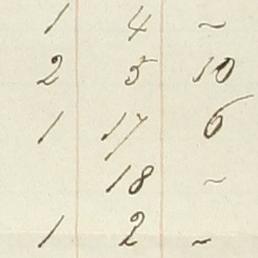 1 4 ~
2 5 10
1 17 6
18 ~
1 2 ~